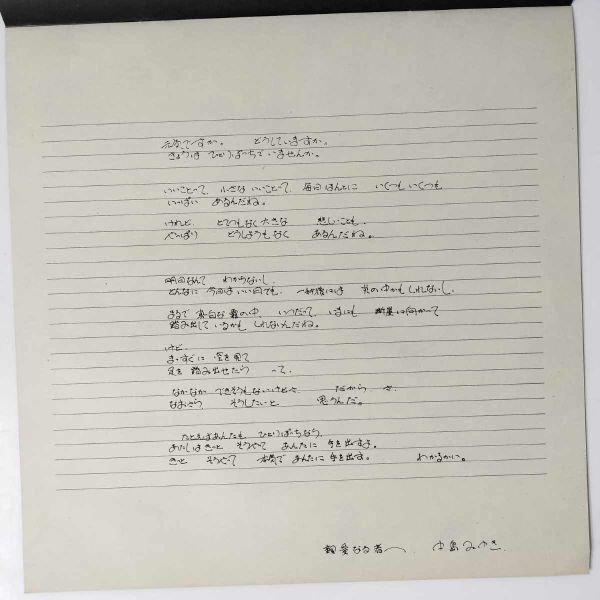 元気ですか。 どうしていますか。
きょうは ひとりぼっちでいませんか。
いいことって、小さな いいことって、毎日 ほんとに いくつも いくつも
いっぱい あるんだね。
けれど、 とてつもなく 大きな 悲しいことも、
やっぱり どうしようもなく あるんだね。
明日なんて わかんないし、
どんなに 今日は いい日でも、 一秒後には 炎の中かもしれないし、
まるで 真白な 霧の中、いつだって、いまにも 断崖に向かって
踏み出して いるかも しれないんだね。
けど、
まっすぐに 空を見て
足を 踏み出せたら って、
なかなか できそうもないけどさ だから さ、
なおさら そうしたいと 思うんだ。
たとえばあんたも ひとりぼっちなら、
あたしはきっと そうやって あんたに 手を出すよ。
きっと そうやって 本気で あんたに 手を出す。 わかるかい。
親愛なる者へ 中島みゆき